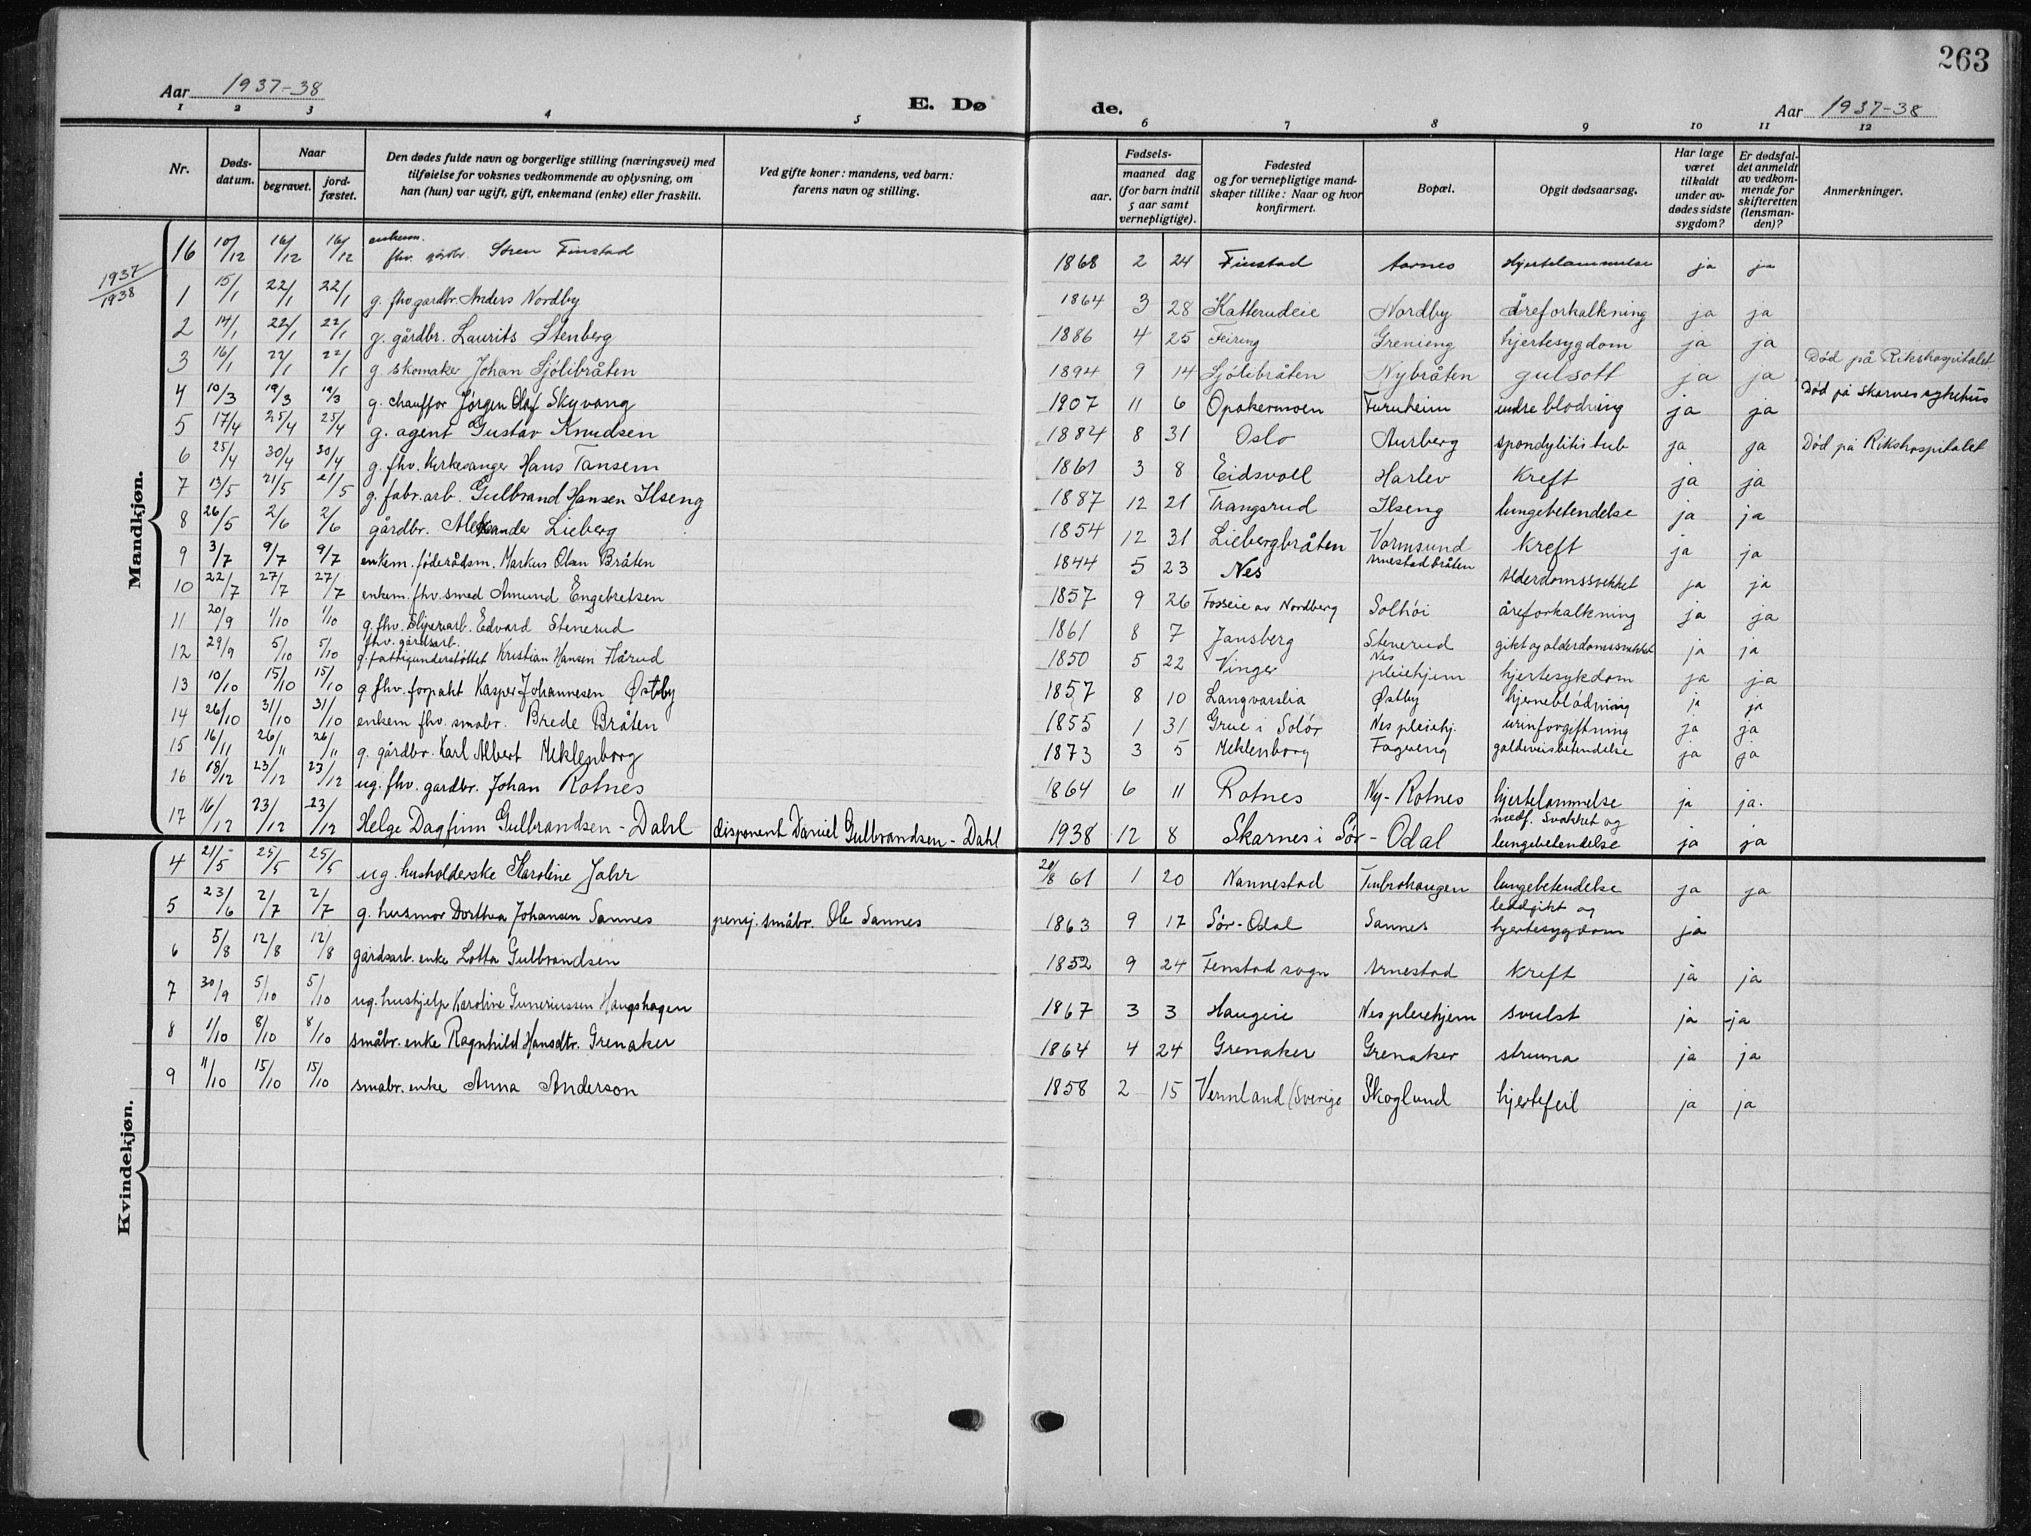 263
Aar 1937-38
E. Dø
de.
Aar 1937-38
1 2 3 4 5 6 7 8 9 10 11 12
Nr.
Døds-
datum.
Naar
begravet.
jord-
fæstet.
Den dødes fulde navn og borgerlige stilling (næringsvei) med
tilføielse for voksnes vedkommende av oplysning, om
han (hun) var ugift, gift, enkemand (enke) eller fraskilt.
Ved gifte koner: mandens, ved barn:
farens navn og stilling.
Fødsels-
aar.
maaned dag
(for barn indtil
5 aar samt
vernepligtige).
Fødested
og for vernepligtige mand-
skaper tillike: Naar og hvor
konfirmert.
Bopæl.
Opgit dødsaarsag.
Har læge
været
tilkaldt
under av-
dødes sidste
sygdom?
Er dødsfal-
det anmeldt
av vedkom-
mende for
skifteretten
(lensman-
den)?
Anmerkninger.
Mandkjøn.
16 10/12 16/12 16/12 enkem. fhv. gårdbr Søren Finstad 1868 2 24 Finstad Aarnes Hjertelammelse ja ja
1937/1938
1 15/1 22/1 22/1 g. fhv. gardbr. Anders Nordby 1864 3 28 Katterudeie Nordby åreforkalkning ja ja
2 14/1 22/1 22/1 g. gårdbr. Laurits Stenberg 1886 4 25 Feiring Grenieng hjertesygdom ja ja
3 16/1 22/1 22/1 g skomaker Johan Sjölibråten 1894 9 14 Sjölibråten Nybråten gulsott ja ja Død på Rikshospitalet
4 10/3 19/3 19/3 g. chauffør Jørgen Olaf Skyvang 1907 11 6 Opakermoen Furuheim indre blødning ja ja Død på Skarnes sykehus
5 17/4 25/4 25/4 g. agent Gustav Knudsen 1884 8 31 Oslo Aurberg spondylitis tub ja ja Død på Rikshospitalet
6 25/4 30/4 30/4 g. fhv. kirkesanger Hans Tansem 1861 3 8 Eidsvoll Harlev Kreft ja ja
7 13/5 21/5 21/5 g. fabr. arb. Gulbrand Hansen Ilseng 1887 12 21 Trangsrud Ilseng lungebetendelse ja ja
8 26/5 2/6 2/6 gårdbr. Aleksander Lieberg 1854 12 31 Liebergbråten Vormsund Kreft ja ja
9 3/7 9/7 9/7 enkem. føderådsm. Markus Olsen Bråten 1844 5 23 Nes Arnestadbråten Alderdomssvekket ja ja
10 22/7 27/7 27/7 enkem. fhv. smed Amund Engebretsen 1857 9 26 Fosseie av Nordberg Solhöi åreforkalkning ja ja
11 20/9 1/10 1/10 g. fhv. sliperiarb. Edvard Stenerud 1861 8 7 Jansberg Stenerud gikt og alderdomssvekket ja ja
12 29/9 5/10 5/10 fhv. gårdsarb. g. fattigunderstøttet Kristian Hansen Hårud 1850 5 22 Vinger Nes pleiehjem hjertesykdom ja ja
13 10/10 15/10 15/10 g fhv. forpakt Kasper Johannesen Østby 1857 8 10 Langvasslia Østby hjerneblødning ja ja
14 26/10 31/10 31/10 enkem fhv. småbr. Brede Bråten 1855 1 31 Grue i Solør Nes pleiehj. urinforgiftning ja ja
15 16/11 26/11 26/11 g. gårdbr. Karl Albert Meklenborg 1873 3 5 Meklenborg Fagereng galdeveisbetendelse ja ja
16 18/12 23/12 23/12 ug. fhv. gardbr. Johan Rotnes 1864 6 11 Rotnes Ny-Rotnes hjertelammelse ja ja.
17 16/12 23/12 23/12 Helge Dagfinn Gulbrandsen-Dahl disponent Daniel Gulbrandsen-Dahl 1938 12 8 Skarnes i Sør-Odal medf. svakhet og lungebetendelse ja ja
Kvindekjøn.
4 21/5 25/5 25/5 ug. husholderske Karoline Jahr 20/8 61 1 20 Nannestad Timbrohaugen lungebetendelse ja ja
5 23/6 2/7 2/7 g. husmor Dorthea Johansen Sannes pensj. småbr. Ole Sannes 1863 9 17 Sør-Odal Sannes leddgikt og hjertesygdom ja
6 5/8 12/8 12/8 gårdsarb. enke Lotta Gulbrandsen 1852 9 24 Fenstad sogn Arnestad Kreft ja ja
7 30/9 5/10 5/10 ug. hushjelp Karoline Guneriussen Haugshagen 1867 3 3 Haugeie Nes pleiehjem svulst ja ja
8 1/10 8/10 8/10 småbr. enke Ragnhild Hansdtr. Grenaker 1864 4 24 Grenaker Grenaker struma ja ja
9 11/10 15/10 15/10 småbr. enke Anna Anderson 1858 2 15 Vermland (Sverige Skoglund hjertefeil ja ja